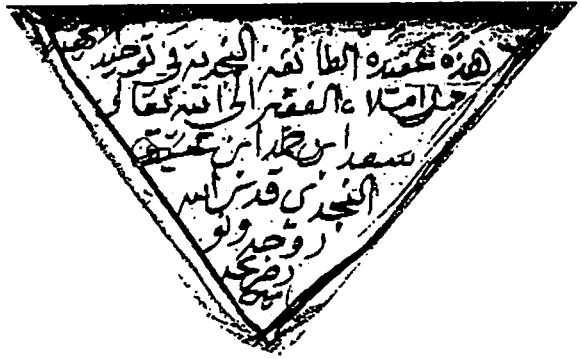 هذه عقيدة الطائفة النجدية في توحيد
من املاء الفقير الى الله تعالى
سعد ابن حمد ابن عتيق
النجدي قدس الله
روحه ونو
ر ضريحه
امين